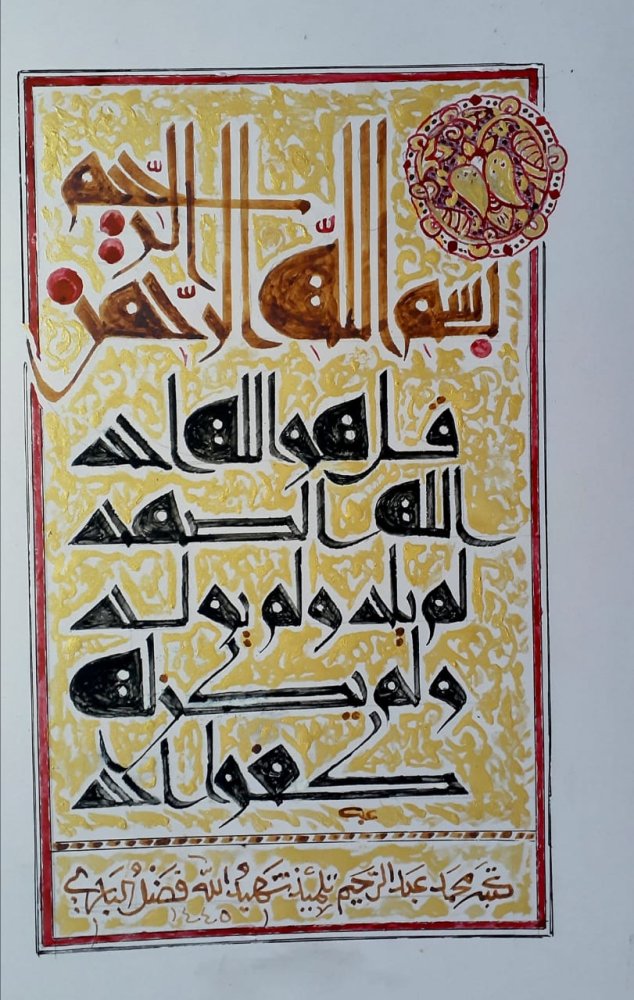 بسم الله الرحمن
الرحيم
قل هو الله احد
الله الصمد
لم يلد ولم يولد
ولم يكن له
كفوا احد
كتبه محمد عبد الرحيم تلميذ شهيد الله فضل الباري
١٤٤٥